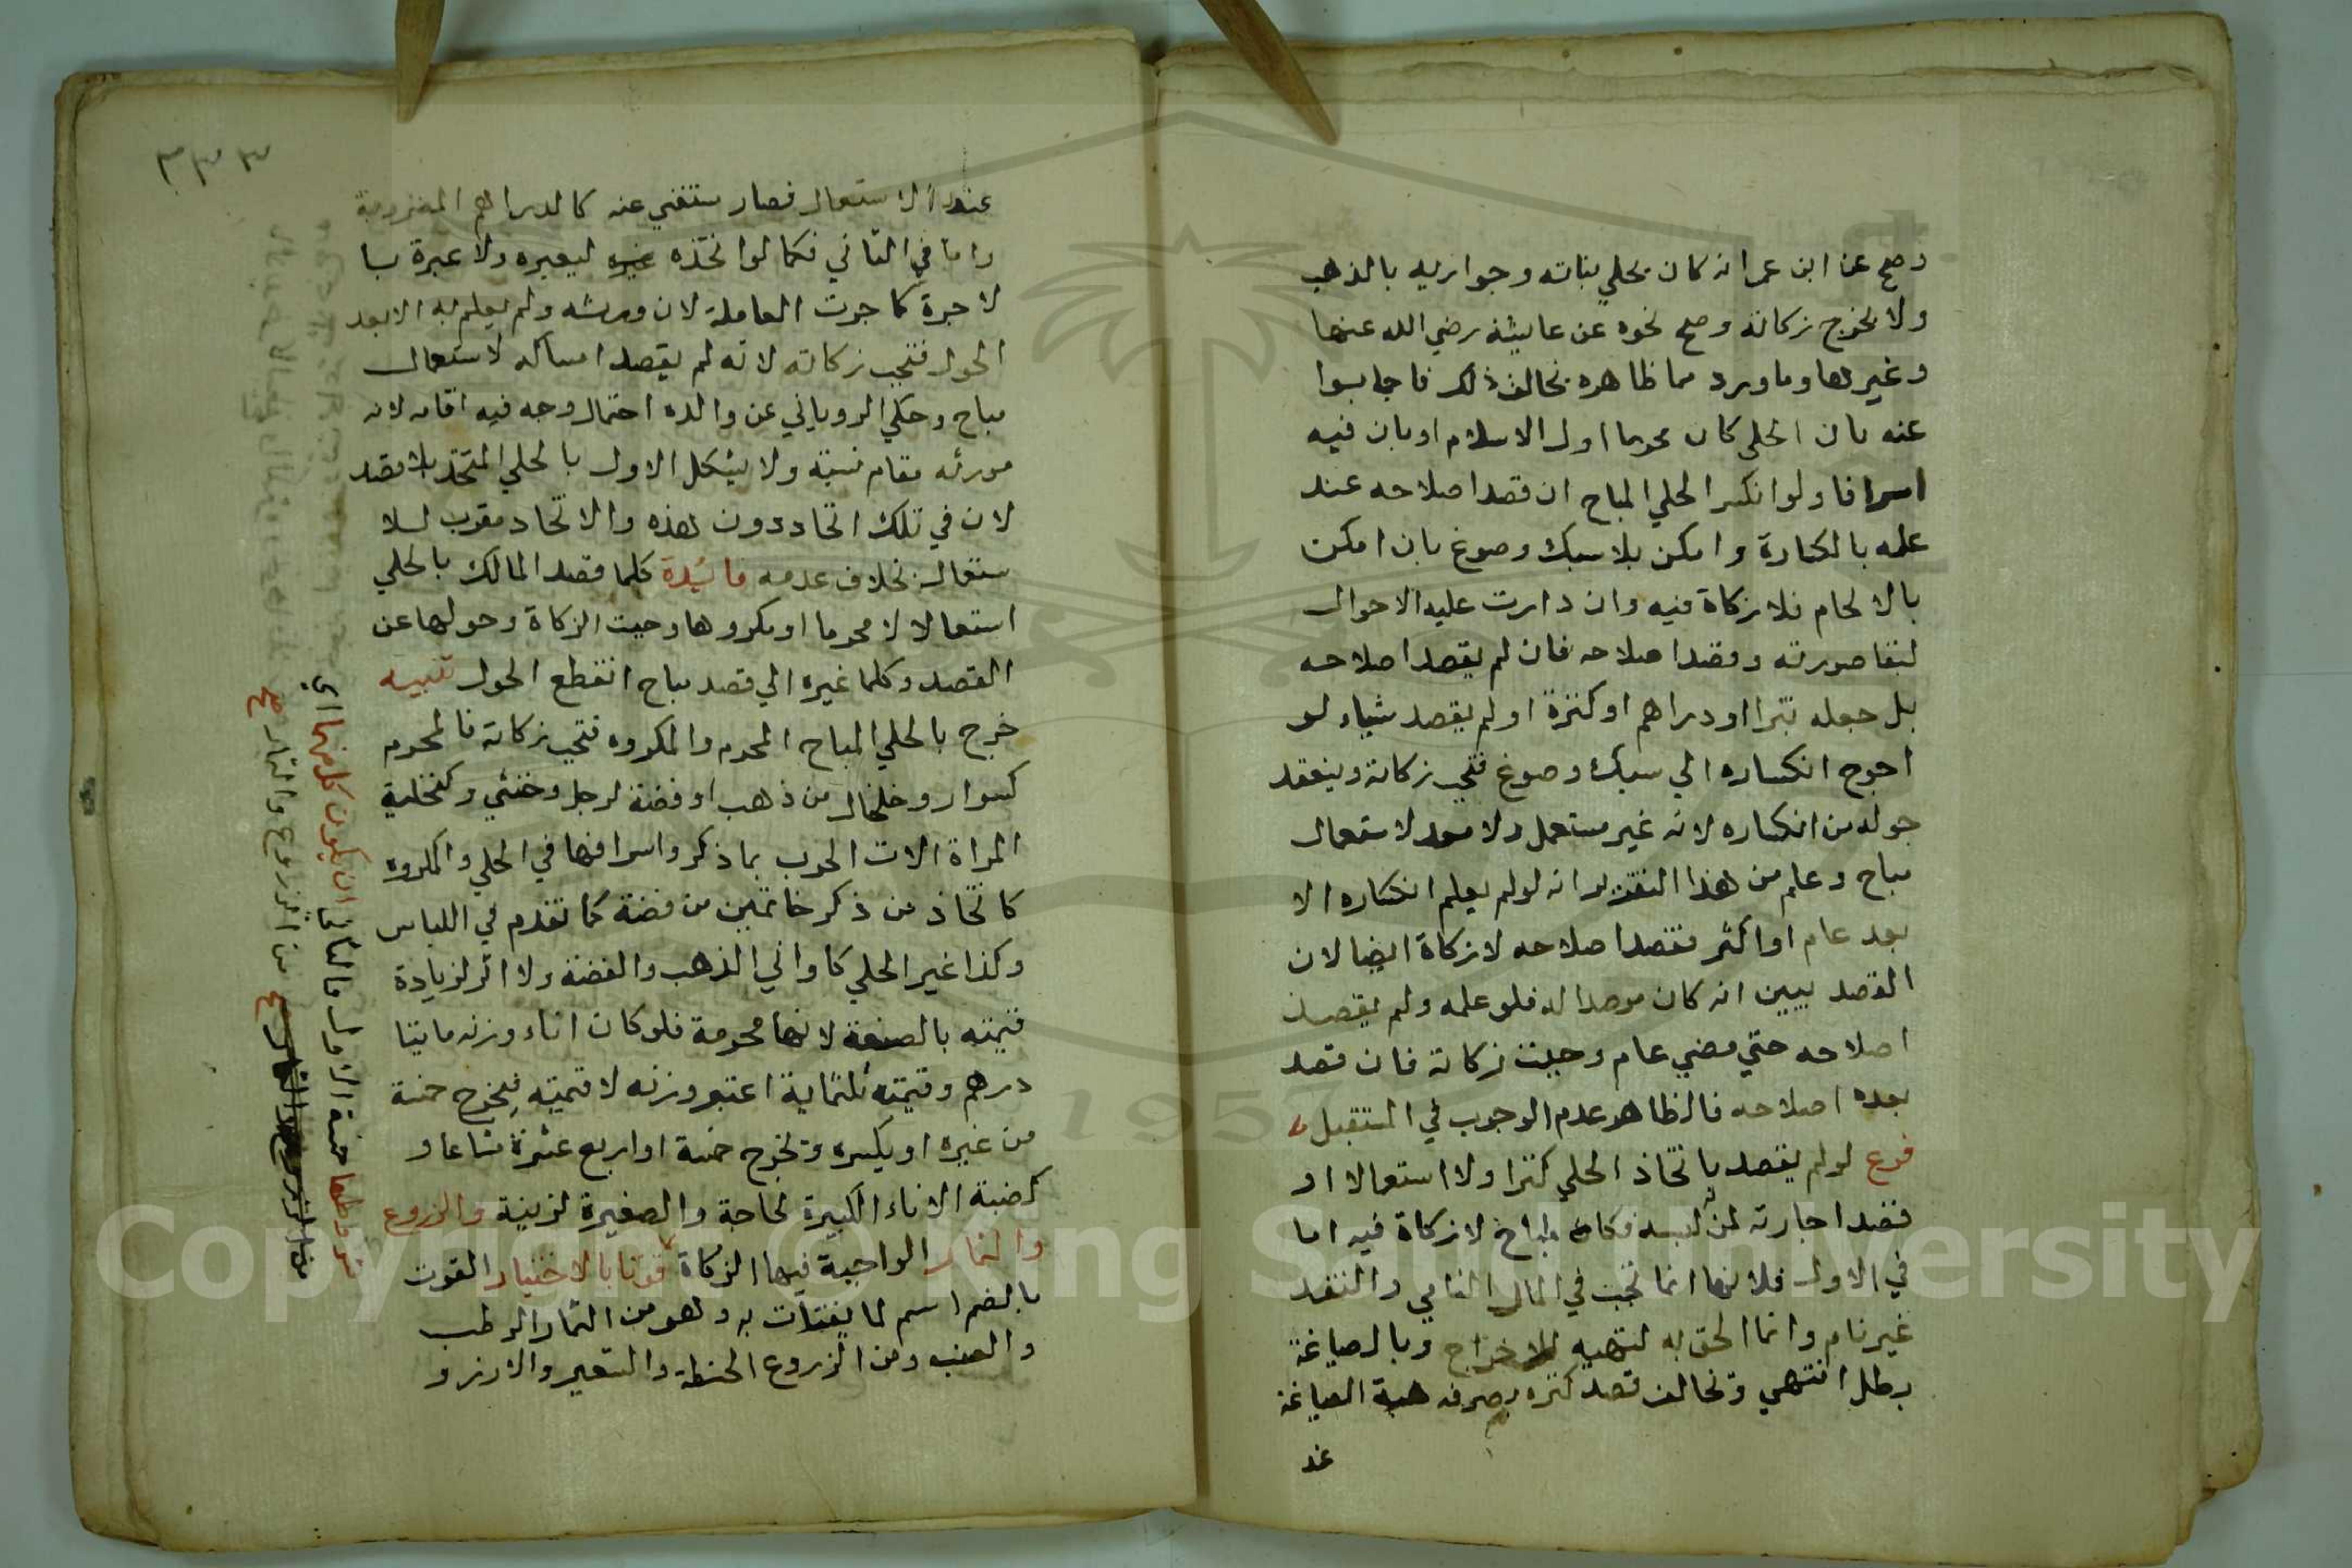 وصح عن ابن عمر انه كان يحلي بناته وجواريه بالذهب
ولا يخرج زكاته وصح نحوه عن عايشة رضي الله عنها
وغيرها وما ورد مما ظاهره يخالف ذلك فاجابوا
عنه بان الحلي كان محرما اول الاسلام او بان فيه
اسرافا ولو انكسر الحلي المباح ان قصد اصلاحه عند
علمه بالكسارة وامكن بلا سبك وصوغ بان امكن
بالالحام فلا زكاة فيه وان دارت عليه الاحوال
لبقا صورته وقصد اصلاحه فان لم يقصد اصلاحه
بل جعله تبرا او دراهم او كنزة او لم يقصد شياء لو
احوج انكساره الي سبك وصوغ فتجب زكاته وينعقد
حوله من انكساره لانه غير مستعمل ولا معد لاستعمال
مباح وعلم من هذا التقدير انه لو لم يعلم انكساره الا
بعد عام او اكثر فقصد اصلاحه لا زكاة ايضا لان
القصد يبين انه كان مرصدا له فلو علمه ولم يقصد
اصلاحه حتي مضي عام وجبت زكاته فان قصد
بعده اصلاحه فالظاهر عدم الوجوب في المستقبل
فرع لو لم يقصد باتخاذ الحلي كنزا ولا استعمالا او
قصد اجارته لمن له لبسه فكان مباح لا زكاة فيه اما
في الاول فلانها انما تجب في المال النامي والنقد
غير نام وانما الحق به لتهيه للاخراج وبالصياغة
بطل انتهي وتخالف قصد كنزه بصرفه هية الصياغة
عند
٣٣٣
عند الاستعمال فصار ستغني عنه كالدراهم المضروبة
واما في الثاني فكما لو اتخذه غيره ليعيره ولا عبرة با
لاجرة كاجرت العاملة لان ورثه ولم يعلم به الا بعد
الحول فتجب زكاته لانه لم يقصد امساكه لاستعمال
مباح وحكي الروياني عن والده احتمال وجه فيه اقامه لانه
مورثه مقام نيته ولا يشكل الاول بالحلي المتخذ بلا قصد
لان في تلك اتخاد دون هذه والاتخاد مقرب للا
ستعمال بخلاف عدمه فائدة كلما قصد المالك بالحلي
استعمالا لا محرما او مكروها وجبت الزكاة وحولها عن
القصد وكلما غيره الي قصد مباح انقطع الحول تنبيه
خرج بالحلي المباح المحرم والمكروه فتجب زكاته فالمحرم
كسوار وخلخال من ذهب او فضة لرجل وخنثي وكتحلية
المراة الات الحرب بما ذكر واسرافها في الحلي والمكروه
كاتخاذ من ذكر خاتمين من فضة كما تقدم في اللباس
وكذا غير الحلي كاواني الذهب والفضة ولا اثر لزيادة
قيمته بالصنعة لانها محرمة فلو كان اناء وزنه مايتا
درهم وقيمته ثلثماية اعتبر وزنه لا قيمته فيخرج خمسة
من غيره او يكسره وتخرج خمسة او اربع عشرة مشاعا و
كضبة الاناء الكبيرة لحاجة والصغيرة لزينة والزروع
والثمار الواجبة فيها الزكاة قوتا بالاختيار القوت
بالضم اسم لما يقتات به وهو من الثمار الرطب
والعنب ومن الزروع الحنطة والشعير والارز و
شروطها خمسة الاول ما اشار اليه ان يكون كل منها اي
من الزروع والثمار صح